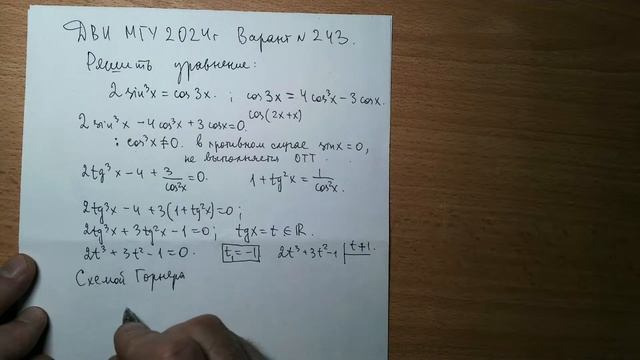 ДВИ МГУ 2024г Вариант N 243.
Решить уравнение:
2 sin³x = cos 3x. ; cos 3x = 4 cos³x - 3 cos x.
cos(2x+x)
2 sin³x - 4 cos³x + 3 cos x = 0.
: cos³x ≠ 0. в противном случае sin x = 0,
не выполняется ОТТ.
2 tg³x - 4 + 3/cos²x = 0. 1 + tg²x = 1/cos²x.
2 tg³x - 4 + 3(1 + tg²x) = 0 ;
2 tg³x + 3 tg²x - 1 = 0 ; tg x = t ∈ ℝ.
2t³ + 3t² - 1 = 0. t₁ = -1 2t³ + 3t² - 1 | t + 1.
Схемой Горнера